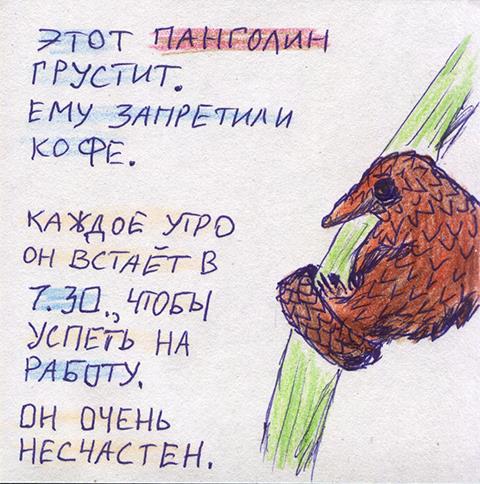 ЭТОТ ПАНГОЛИН
ГРУСТИТ.
ЕМУ ЗАПРЕТИЛИ
КОФЕ.
КАЖДОЕ УТРО
ОН ВСТАЁТ В
7.30., ЧТОБЫ
УСПЕТЬ НА
РАБОТУ.
ОН ОЧЕНЬ
НЕСЧАСТЕН.